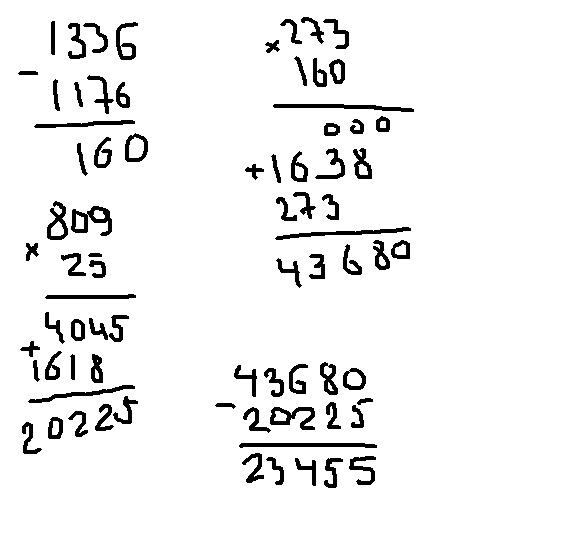 1336
-
1176
160
× 273
160
000
+1638
273
43680
809
×
25
4045
+
1618
20225
43680
-
20225
23455